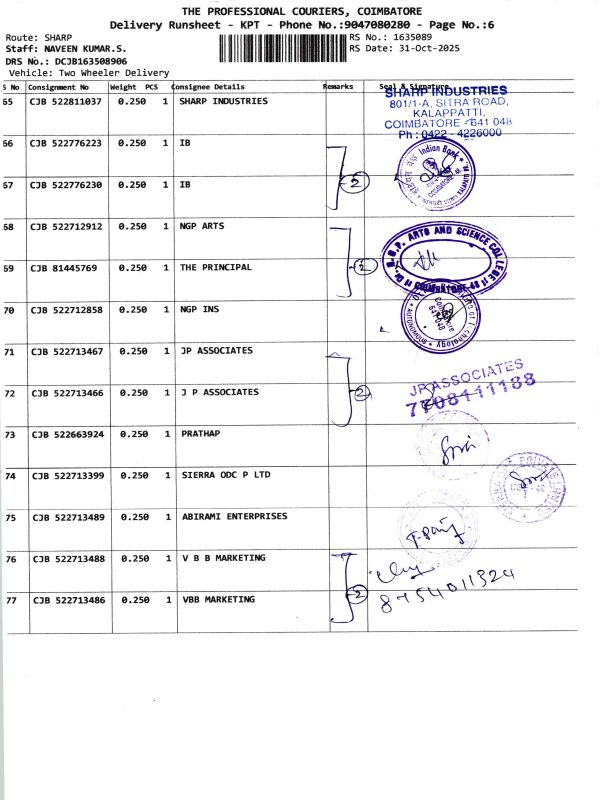 THE PROFESSIONAL COURIERS, COIMBATORE
Delivery Runsheet - KPT - Phone No.:9047080280 - Page No.:6
Route: SHARP
RS No.: 1635089
Staff: NAVEEN KUMAR.S.
RS Date: 31-Oct-2025
DRS No.: DCJB163508906
Vehicle: Two Wheeler Delivery
S No Consignment No Weight PCS Consignee Details Remarks Seal & Signature
65 CJB 522811037 0.250 1 SHARP INDUSTRIES
SHARP INDUSTRIES
801/1-A, SITRA ROAD,
KALAPPATTI,
COIMBATORE - 641 048
Ph : 0422 - 4226000
66 CJB 522776223 0.250 1 IB
Indian Bank
2
67 CJB 522776230 0.250 1 IB
68 CJB 522712912 0.250 1 NGP ARTS
Dr. N.G.P. ARTS AND SCIENCE COLLEGE
COIMBATORE-48
2
69 CJB 81445769 0.250 1 THE PRINCIPAL
70 CJB 522712858 0.250 1 NGP INS
Coimbatore
641 048
71 CJB 522713467 0.250 1 JP ASSOCIATES
JP ASSOCIATES
7708411188
2
72 CJB 522713466 0.250 1 J P ASSOCIATES
73 CJB 522663924 0.250 1 PRATHAP
74 CJB 522713399 0.250 1 SIERRA ODC P LTD
75 CJB 522713489 0.250 1 ABIRAMI ENTERPRISES
76 CJB 522713488 0.250 1 V B B MARKETING
8754011324
2
77 CJB 522713486 0.250 1 VBB MARKETING